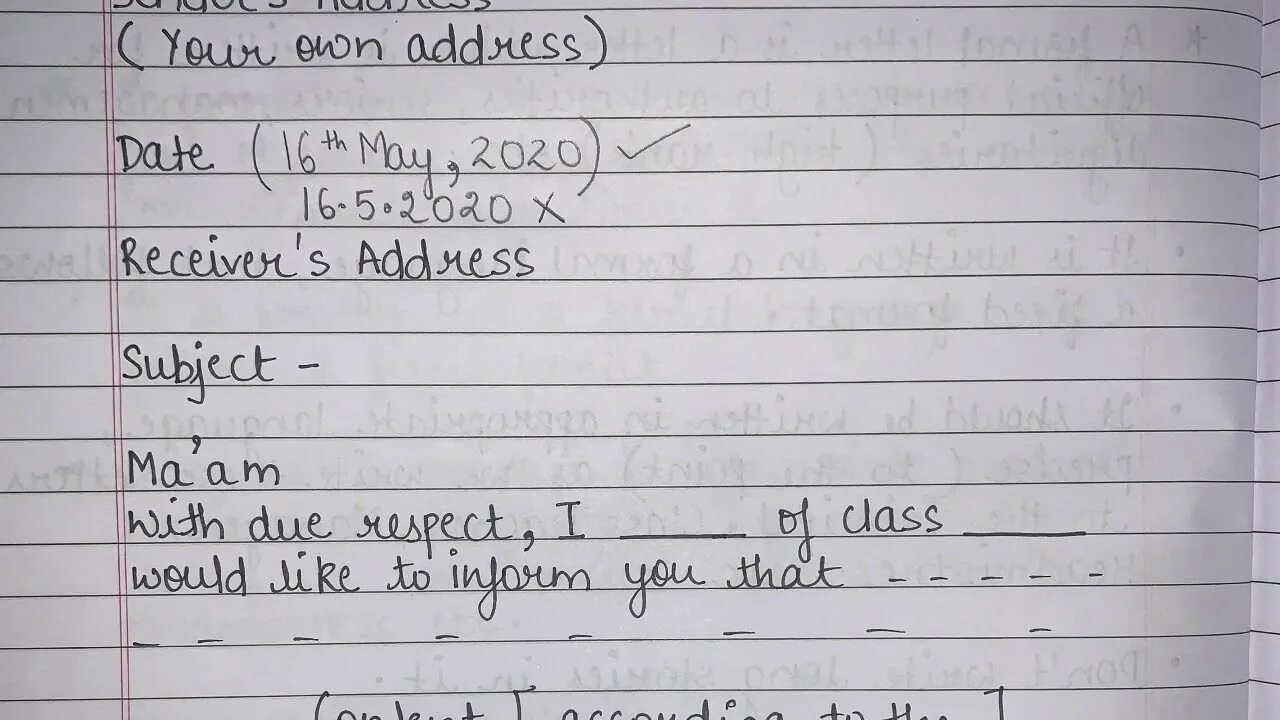 Sender's Address
(Your own address)
Date (16th May, 2020) ✓
16.5.2020 ×
Receiver's Address
Subject -
Ma'am
With due respect, I ______ of class ______
would like to inform you that - - - - -
- - - - - - - -
(Content [ according to the ]